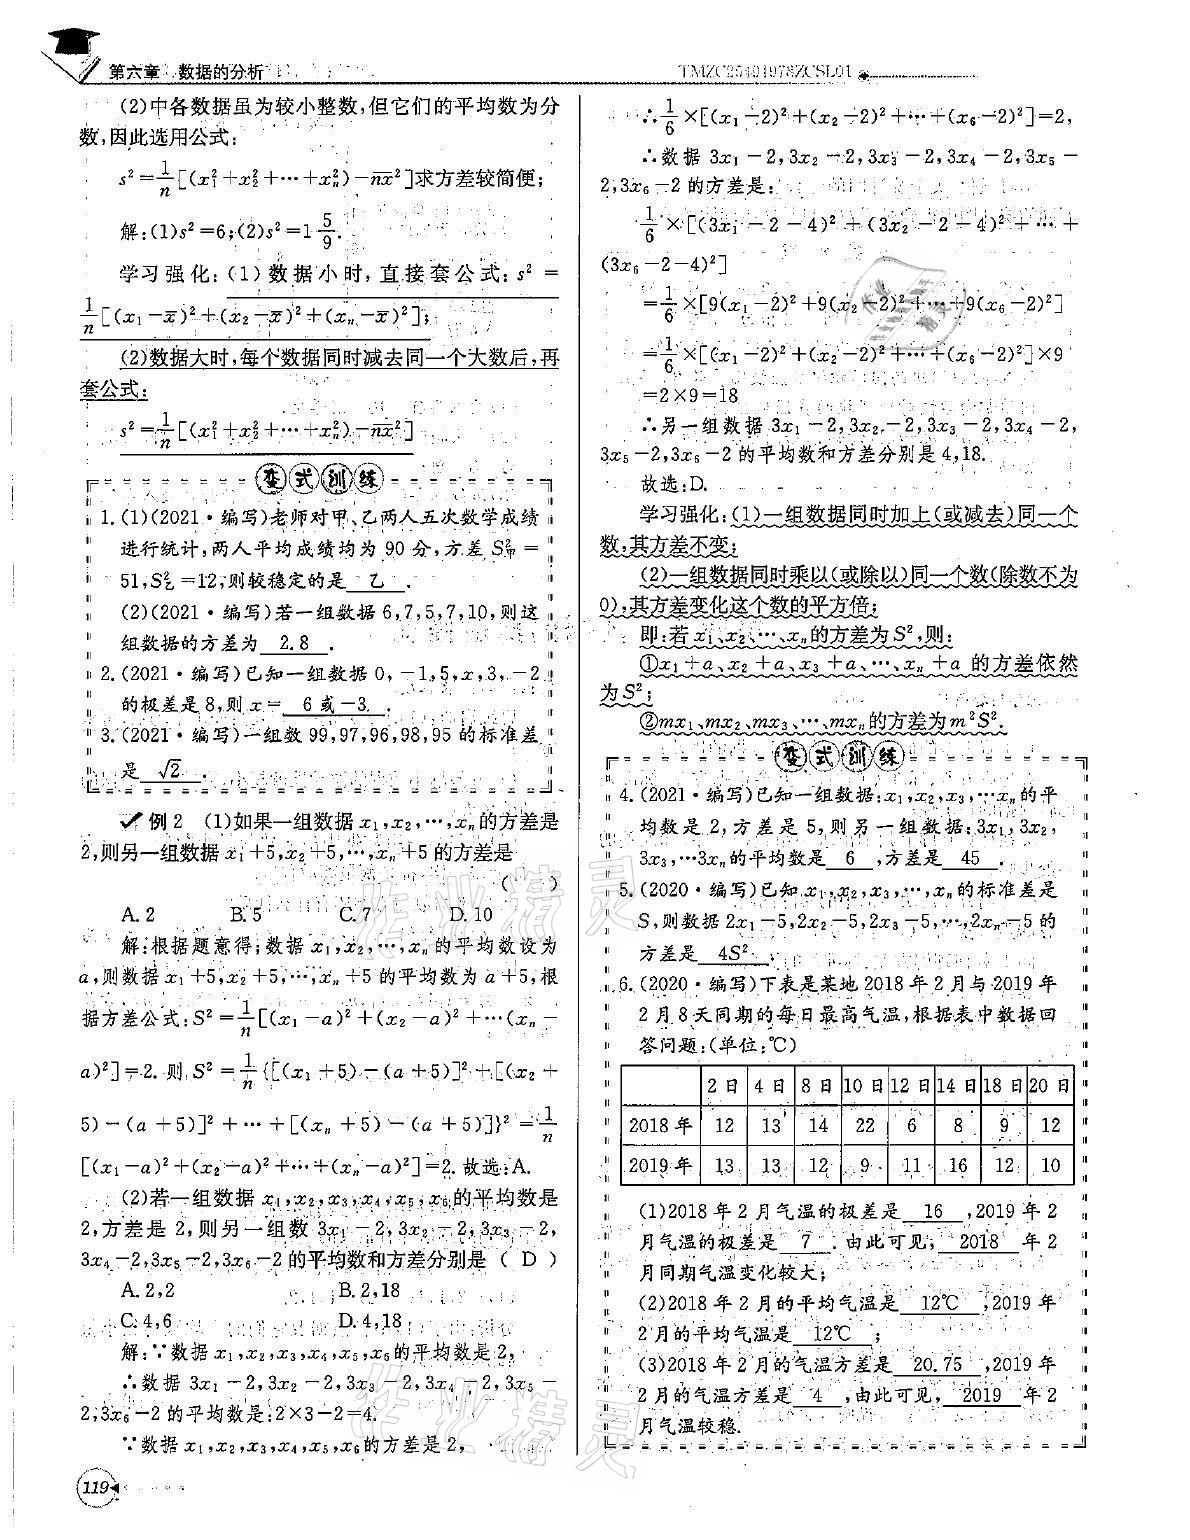 第六章 数据的分析
TMZC25494978ZCSL01
(2)中各数据虽为较小整数,但它们的平均数为分
数,因此选用公式:
s²=1/n[(x₁²+x₂²+…+xₙ²)-nx̄²]求方差较简便;
解:(1)s²=6;(2)s²=1 5/9.
学习强化:(1)数据小时,直接套公式:s²=
1/n[(x₁-x̄)²+(x₂-x̄)²+(xₙ-x̄)²];
(2)数据大时,每个数据同时减去同一个大数后,再
套公式:
s²=1/n[(x₁²+x₂²+…+xₙ²)-nx̄²]
变式训练
1.(1)(2021·编写)老师对甲、乙两人五次数学成绩
进行统计,两人平均成绩均为90分,方差S甲²=
51,S乙²=12,则较稳定的是 乙 .
(2)(2021·编写)若一组数据6,7,5,7,10,则这
组数据的方差为 2.8 .
2.(2021·编写)已知一组数据0,-1,5,x,3,-2
的极差是8,则x= 6或-3 .
3.(2021·编写)一组数99,97,96,98,95的标准差
是 √2 .
例2 (1)如果一组数据x₁,x₂,…,xₙ的方差是
2,则另一组数据x₁+5,x₂+5,…,xₙ+5的方差是
( )
A.2 B.5 C.7 D.10
解:根据题意得;数据x₁,x₂,…,xₙ的平均数设为
a,则数据x₁+5,x₂+5,…,xₙ+5的平均数为a+5,根
据方差公式:S²=1/n[(x₁-a)²+(x₂-a)²+…(xₙ-
a)²]=2.则S²=1/n{[(x₁+5)-(a+5)]²+[(x₂+
5)-(a+5)]²+…+[(xₙ+5)-(a+5)]}²=1/n
[(x₁-a)²+(x₂-a)²+…+(xₙ-a)²]=2.故选:A.
(2)若一组数据x₁,x₂,x₃,x₄,x₅,x₆的平均数是
2,方差是2,则另一组数3x₁-2,3x₂-2,3x₃-2,
3x₄-2,3x₅-2,3x₆-2的平均数和方差分别是( D )
A.2,2 B.2,18
C.4,6 D.4,18
解:∵数据x₁,x₂,x₃,x₄,x₅,x₆的平均数是2,
∴数据3x₁-2,3x₂-2,3x₃-2,3x₄-2,3x₅-
2,3x₆-2的平均数是:2×3-2=4.
∵数据x₁,x₂,x₃,x₄,x₅,x₆的方差是2,
119
∴1/6×[(x₁-2)²+(x₂-2)²+…+(x₆-2)²]=2,
∴数据3x₁-2,3x₂-2,3x₃-2,3x₄-2,3x₅-
2,3x₆-2的方差是:
1/6×[(3x₁-2-4)²+(3x₂-2-4)²+…+
(3x₆-2-4)²]
=1/6×[9(x₁-2)²+9(x₂-2)²+…+9(x₆-2)²]
=1/6×[(x₁-2)²+(x₂-2)²+…+(x₆-2)²]×9
=2×9=18
∴另一组数据3x₁-2,3x₂-2,3x₃-2,3x₄-2,
3x₅-2,3x₆-2的平均数和方差分别是4,18.
故选:D.
学习强化:(1)一组数据同时加上(或减去)同一个
数,其方差不变;
(2)一组数据同时乘以(或除以)同一个数(除数不为
0),其方差变化这个数的平方倍;
即:若x₁、x₂、…、xₙ的方差为S²,则:
①x₁+a、x₂+a、x₃+a、…、xₙ+a的方差依然
为S²;
②mx₁、mx₂、mx₃、…、mxₙ的方差为m²S².
变式训练
4.(2021·编写)已知一组数据:x₁,x₂,x₃,…xₙ的平
均数是2,方差是5,则另一组数据:3x₁,3x₂,
3x₃,…3xₙ的平均数是 6 ,方差是 45 .
5.(2020·编写)已知x₁,x₂,x₃,…,xₙ的标准差是
S,则数据2x₁-5,2x₂-5,2x₃-5,…,2xₙ-5的
方差是 4S² .
6.(2020·编写)下表是某地2018年2月与2019年
2月8天同期的每日最高气温,根据表中数据回
答问题:(单位:℃)
2日 4日 8日 10日 12日 14日 18日 20日
2018年 12 13 14 22 6 8 9 12
2019年 13 13 12 9 11 16 12 10
(1)2018年2月气温的极差是 16 ,2019年2
月气温的极差是 7 .由此可见, 2018 年2
月同期气温变化较大;
(2)2018年2月的平均气温是 12℃ ,2019年
2月的平均气温是 12℃ ;
(3)2018年2月的气温方差是 20.75 ,2019年
2月的气温方差是 4 ,由此可见, 2019 年2
月气温较稳.
作业精灵
作业精灵